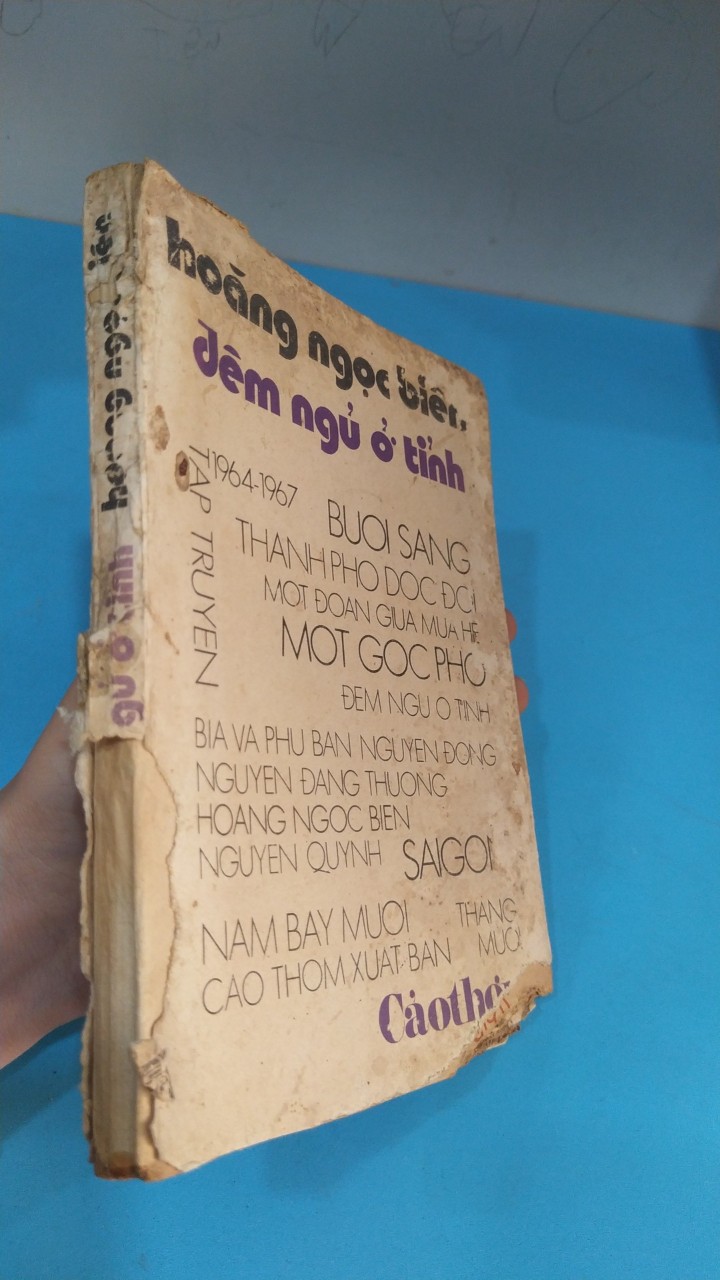 hoàng ngọc biên,
đêm ngủ ở tỉnh
1964-1967
TAP TRUYEN
BUOI SANG
THANH PHO DOC ĐOI
MOT ĐOAN GIUA MUA HE
MOT GOC PHO
ĐEM NGU O TINH
BIA VA PHU BAN NGUYEN ĐONG
NGUYEN ĐANG THUONG
HOANG NGOC BIEN
NGUYEN QUYNH SAIGON
NAM BAY MUOI THANG
MUOI
CAO THOM XUAT BAN
Cảothơm
hoàng ngọc biên
ngủ ở tỉnh